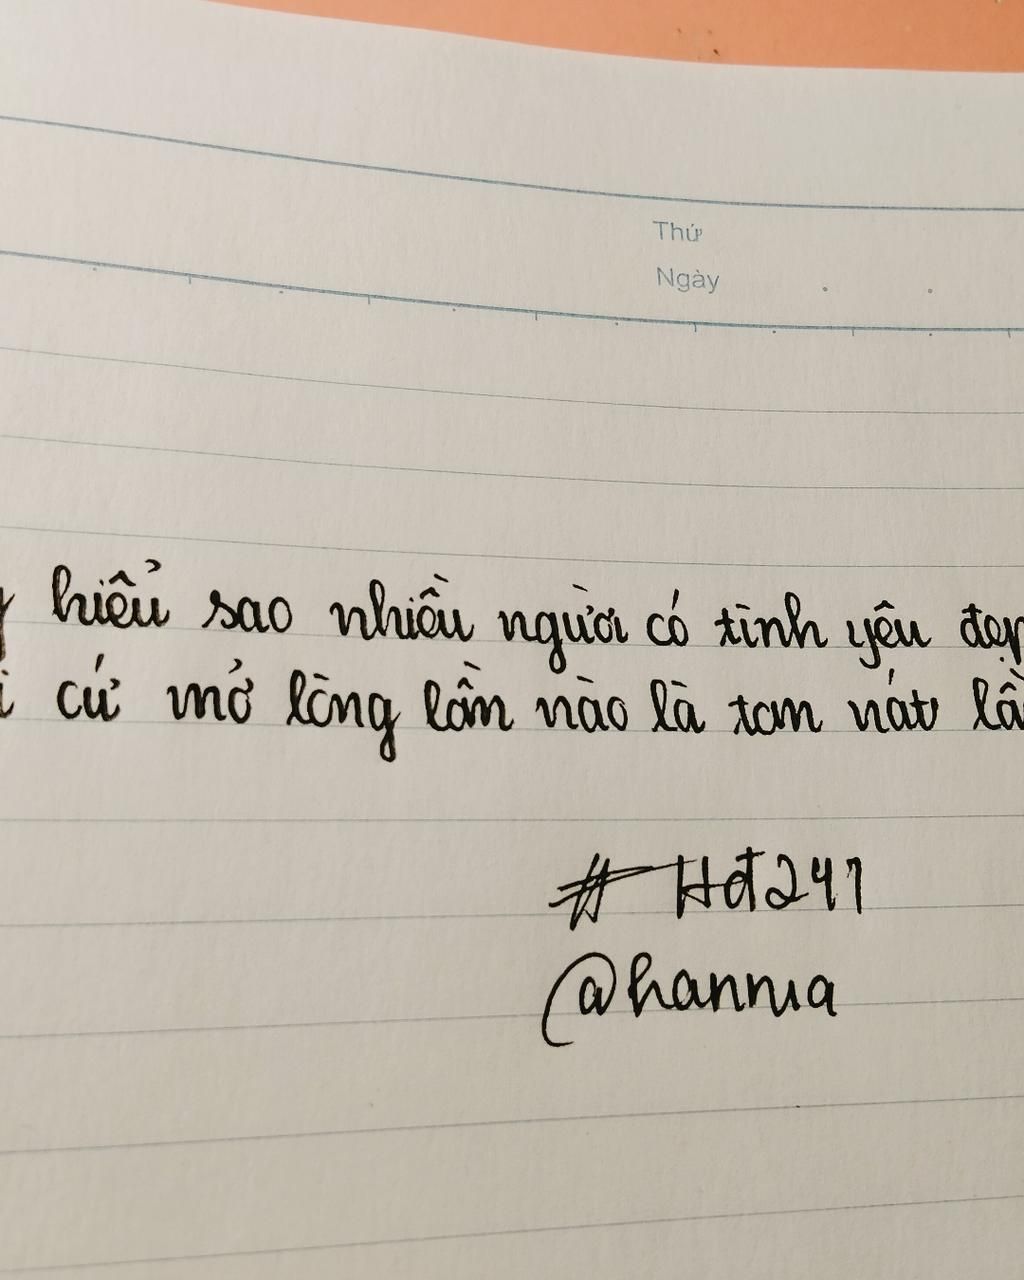 Thứ
Ngày
hiểu sao nhiều người có tình yêu đẹp
cứ mở lòng lần nào là tan nát lần
#Hđ247
@hannia